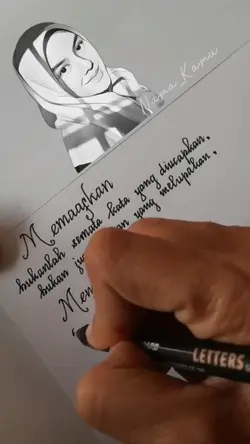 Nama Kamu
Memaafkan
bukanlah semata kata yang diucapkan,
bukan yang melupakan,
Mem
LETTERS